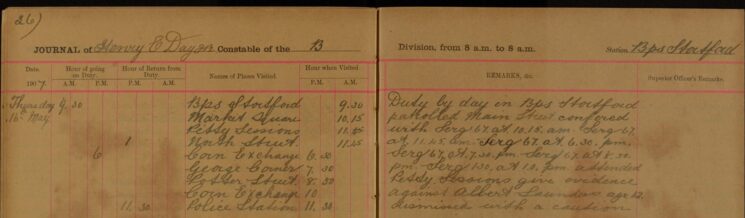 26)
JOURNAL of Henry E Day Constable of the B
Division, from 8 a.m. to 8 a.m. Station Bps Stortford
Date. Hour of going on Duty. Hour of Return from Duty. Names of Places Visited. Hour when Visited. REMARKS, &c. Superior Officer's Remarks.
190 A.M. P.M. A.M. P.M. P.M. A.M.
Thursday 9.30 Bps Stortford 9.30 Duty by day in Bps Stortford
16 May Market Square 10.15 patrolled Main Street conferred
Petty Sessions 11.45 with Serg 67. at 10.15. am. Serg 67.
1 North Street 11.45 at 11.45 am. Serg at 6.30. pm.
6 Corn Exchange 6.30 Serg 67. at 7.30. pm. Serg 67 at 8.30
George Corner 7.30 pm. Serg at 10. pm. attended
Potter Street 8.30 Petty Sessions give evidence
Corn Exchange 10 against Albert Saunders age 12.
11.30 Police Station 11.30 dismissed with a caution